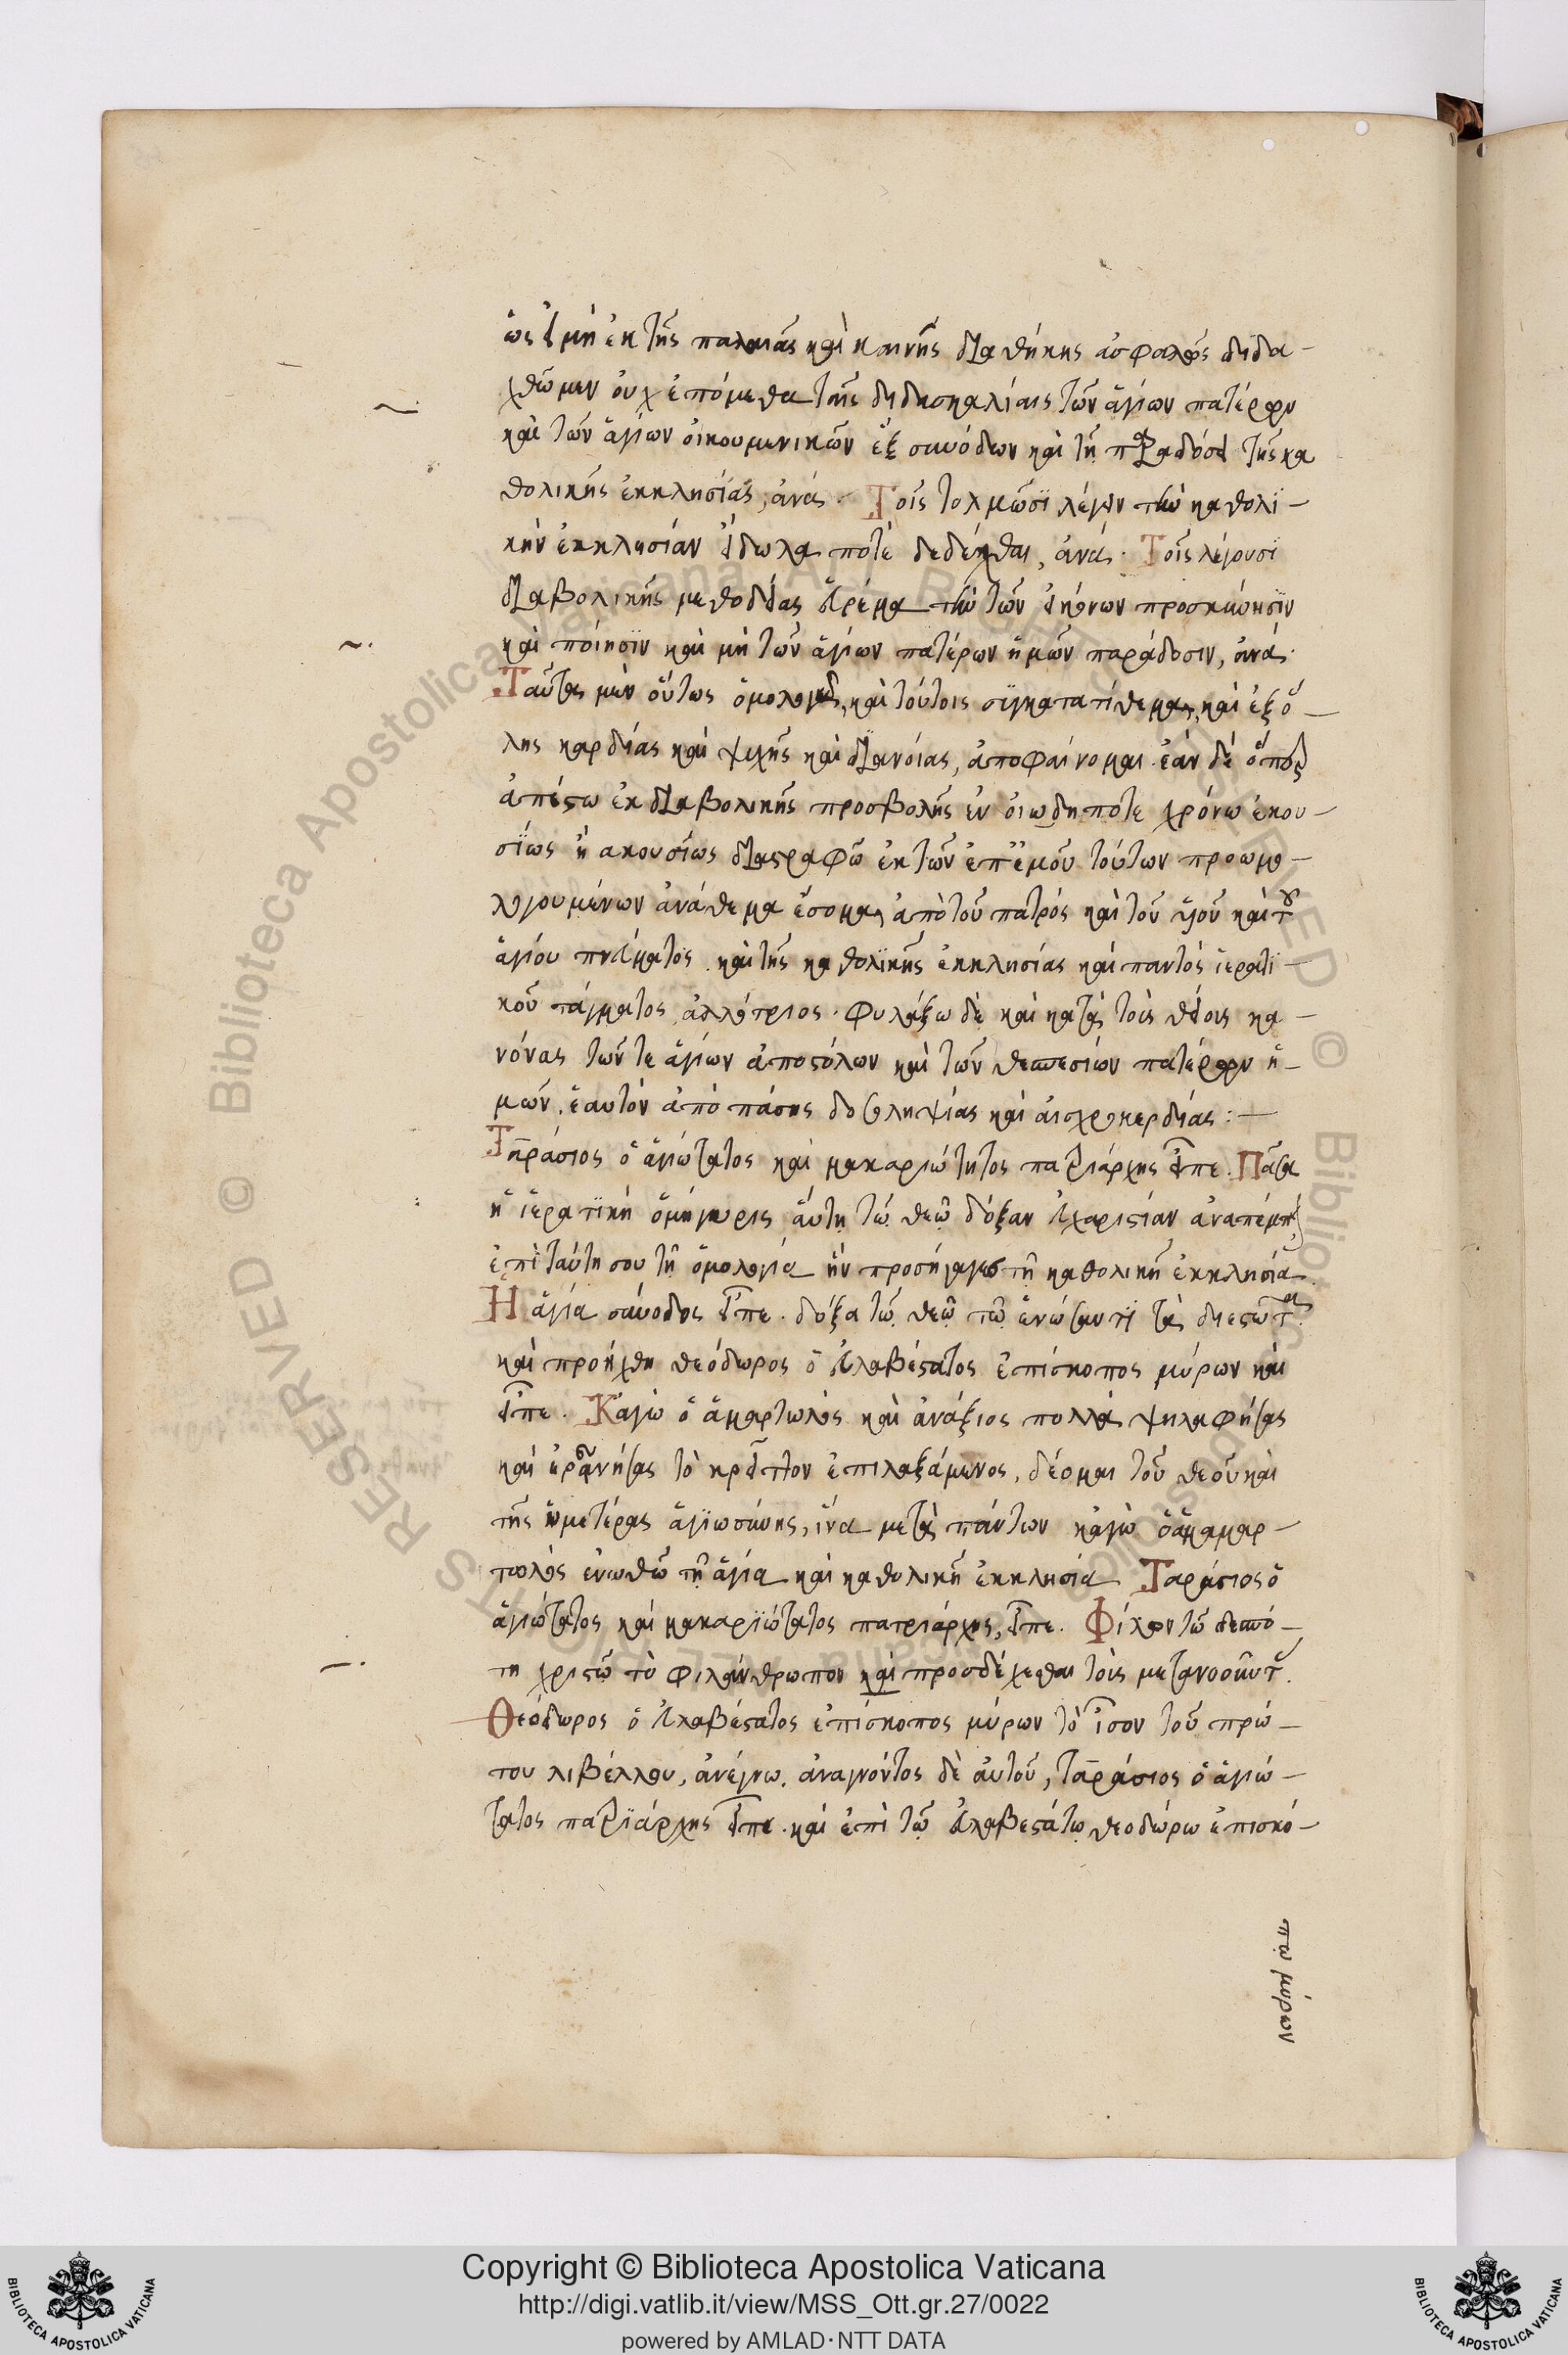 ὡς εἰ μὴ ἐκ τῆς παλαιᾶς καὶ καινῆς διαθήκης ἀσφαλῶς διδα-
χθῶμεν οὐχ ἑπόμεθα ταῖς διδασκαλίαις τῶν ἁγίων πατέρων
καὶ τῶν ἁγίων οἰκουμενικῶν ἓξ συνόδων καὶ τῇ παραδόσει τῆς κα
θολικῆς ἐκκλησίας, ἀνά. Τοῖς τολμῶσϊ λέγειν τὴν καθολϊ-
κὴν ἐκκλησίαν εἴδωλα ποτὲ δεδέχθαι, ἀνά. Τοῖς λέγουσϊ
διαβολικῆς μεθοδείας εὕρεμα τὴν τῶν εἰκόνων προσκύνησϊν
καὶ ποίησϊν καὶ μὴ τῶν ἁγίων πατέρων ἡμῶν παράδοσιν, ἀνά.
Ταῦτα μὲν οὕτως ὁμολογῶ, καὶ τούτοις συγκατατίθεμαι, καὶ ἐξ ὅ-
λης καρδίας καὶ ψυχῆς καὶ διανοίας, ἀποφαίνομαι. ἐὰν δὲ ὅπερ
ἀπέστω ἐκ διαβολικῆς προσβολῆς ἐν οἱωδήποτε χρόνω ἑκου-
σίως ἢ ακουσίως διαστραφῶ ἐκ τῶν ἐπ' ἐμοῦ τούτων προωμο-
λογουμένων ἀνάθεμα ἔσομαι ἀπὸ τοῦ πατρὸς καὶ τοῦ υἱοῦ καὶ τοῦ
ἁγίου πνεύματος. καὶ τῆς καθολϊκῆς ἐκκλησίας καὶ παντὸς ἱερατϊ-
κοῦ τάγματος ἀλλότριος. Φυλάξω δὲ καὶ κατὰ τοὺς θείους κα-
νόνας τῶν τε ἁγίων ἀποστόλων καὶ τῶν θεσπεσίων πατέρων ἡ-
μῶν, ἑαυτὸν ἀπὸ πάσης δοροληψίας καὶ αἰσχροκερδίας:-
Ταράσιος ὁ ἁγιώτατος καὶ μακαριώτητος πατριάρχης εἶπε. Πᾶσα
ἡ ἱερατϊκὴ ὁμήγυρις αὕτη τῶ θεῶ δόξαν εὐχαριστίαν ἀναπέμπει
ἐπὶ ταύτη σου τῆ ὁμολογία ἣν προσήγαγες τῆ καθολικῆ ἐκκλησία.
Ἡ ἁγία σύνοδος εἶπε. δόξα τῶ θεῶ τῶ ἑνώσαντϊ τὰ διεστῶτα.
καὶ προήχθη θεόδωρος ὁ εὐλαβέστατος ἐπίσκοπος μύρων καὶ
εἶπε. Κἀγὼ ὁ ἁμαρτωλὸς καὶ ἀνάξιος πολλὰ ψηλαφήσας
καὶ ἐρευνήσας τὸ κρεῖττον ἐπιλεξάμενος, δέομαι τοῦ θεοῦ καὶ
τῆς ὑμετέρας ἁγϊωσύνης, ἵνα μετὰ πάντων κἀγὼ ὁ ἁμαρ-
τωλὸς ἑνωθῶ τῆ ἁγία καὶ καθολικῆ ἐκκλησία Ταράσιος ὁ
ἁγιώτατος καὶ μακαρϊώτατος πατριάρχης, εἶπε. Φίλον τῶ δεσπό-
τη χριστῶ τὸ φιλάνθρωπον καὶ προσδέχεσθαι τοὺς μετανοοῦντας.
Θεόδωρος ὁ εὐλαβέστατος ἐπίσκοπος μύρων τὸ ἶσον τοῦ πρώ-
του λιβέλλου, ἀνέγνω. ἀναγνόντος δὲ αὐτοῦ, ταράσιος ὁ ἁγιώ-
τατος πατρϊάρχης εἶπε. καὶ ἐπὶ τῶ εὐλαβεστάτω θεοδώρω ἐπισκό-
πω μύρων
Copyright © Biblioteca Apostolica Vaticana
http://digi.vatlib.it/view/MSS_Ott.gr.27/0022
powered by AMLAD·NTT DATA
BIBLIOTECA APOSTOLICA VATICANA
BIBLIOTECA APOSTOLICA VATICANA